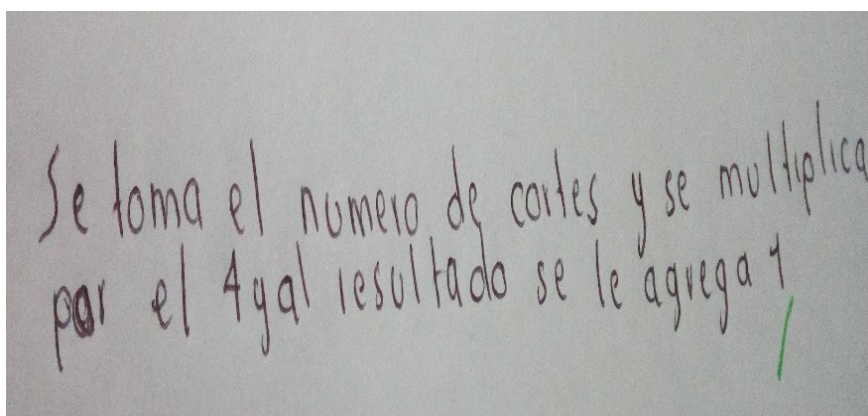 Se toma el numero de cortes y se multiplica
por el 4 y al resultado se le agrega 1